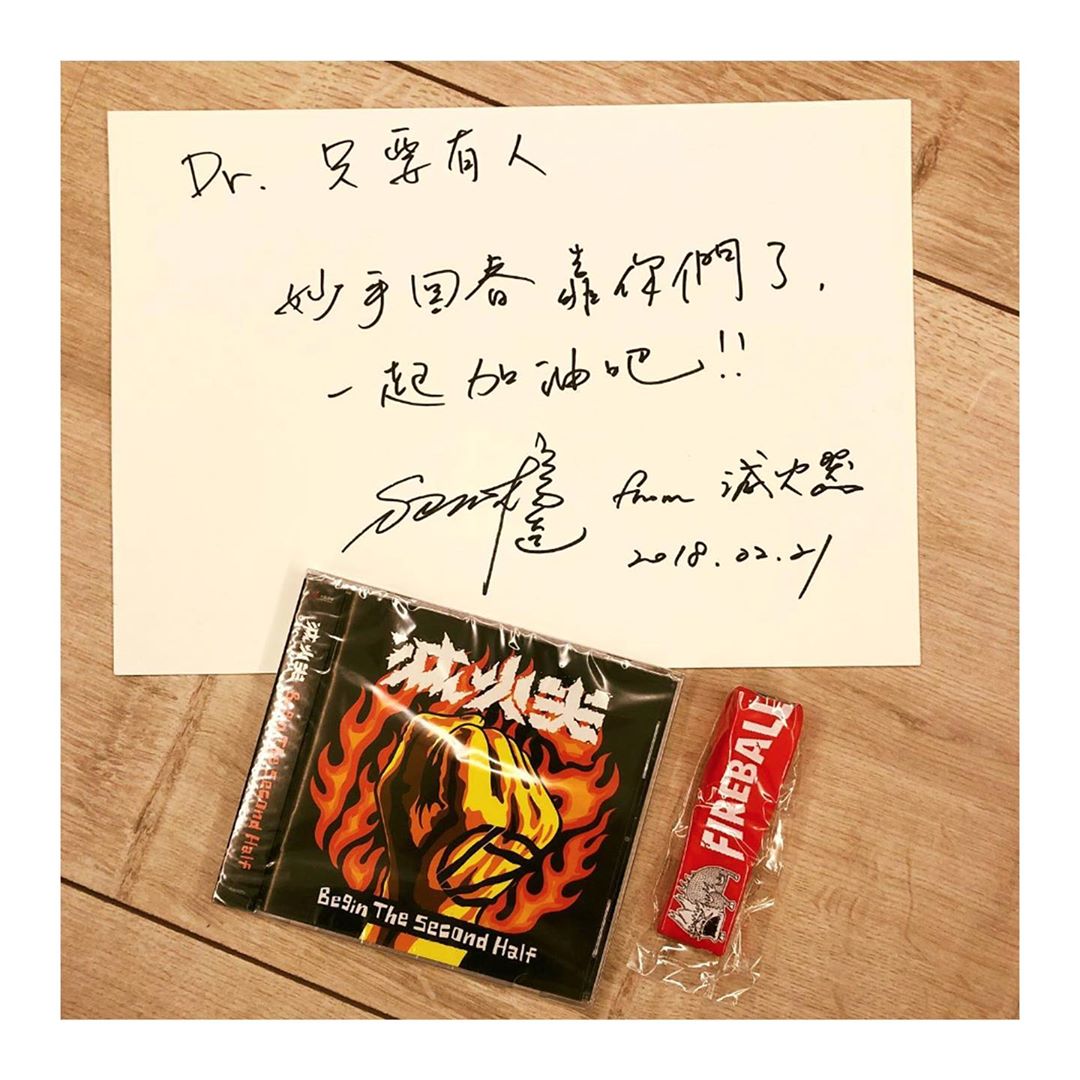 Dr. 只要有人
妙手回春靠你們了，
一起加油吧!!
Sam 楊大正 from 滅火器
2018.02.21
滅火器
Begin The Second Half
滅火器 Begin The Second Half
FIREBALL